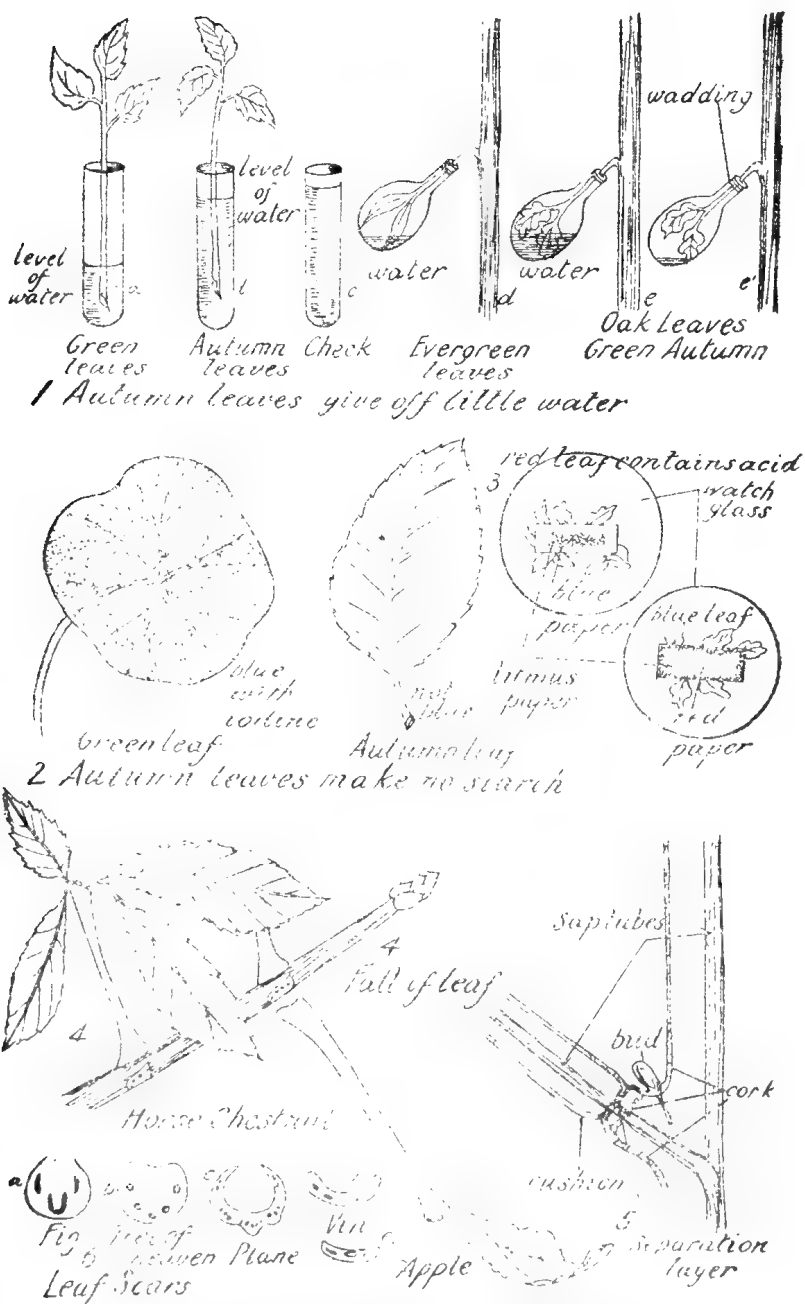 wadding
level
of
water
level
of
water
a
c
water
d
water
e
e'
Green
leaves
Autumn
leaves
Check
Evergreen
leaves
Oak Leaves
Green Autumn
1 Autumn leaves give off little water
3 red leaf contains acid
watch
glass
blue
paper
blue leaf
litmus
paper
red
paper
blue
with
iodine
not
blue
Green leaf
Autumn leaf
2 Autumn leaves make no starch
4
Fall of leaf
4
Horse Chestnut
Saptubes
bud
cork
cushion
5
Separation
layer
a
Fig
Tree of
Heaven
Plane
Apple
6
Leaf Scars